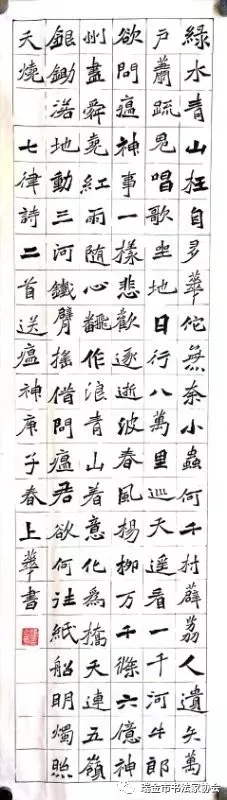 綠水青山枉自多華佗無奈小蟲何千村薜荔人遺矢萬
戶蕭疏鬼唱歌坐地日行八萬里巡天遙看一千河牛郎
欲問瘟神事一樣悲歡逐逝波春風楊柳万千條六億神
州盡舜堯紅雨隨心飜作浪青山着意化爲橋天連五嶺
銀鋤落地動三河鐵臂搖借問瘟君欲何往紙船明燭照
天燒 七律詩二首送瘟神庚子春上華書
瑞金市书法家协会